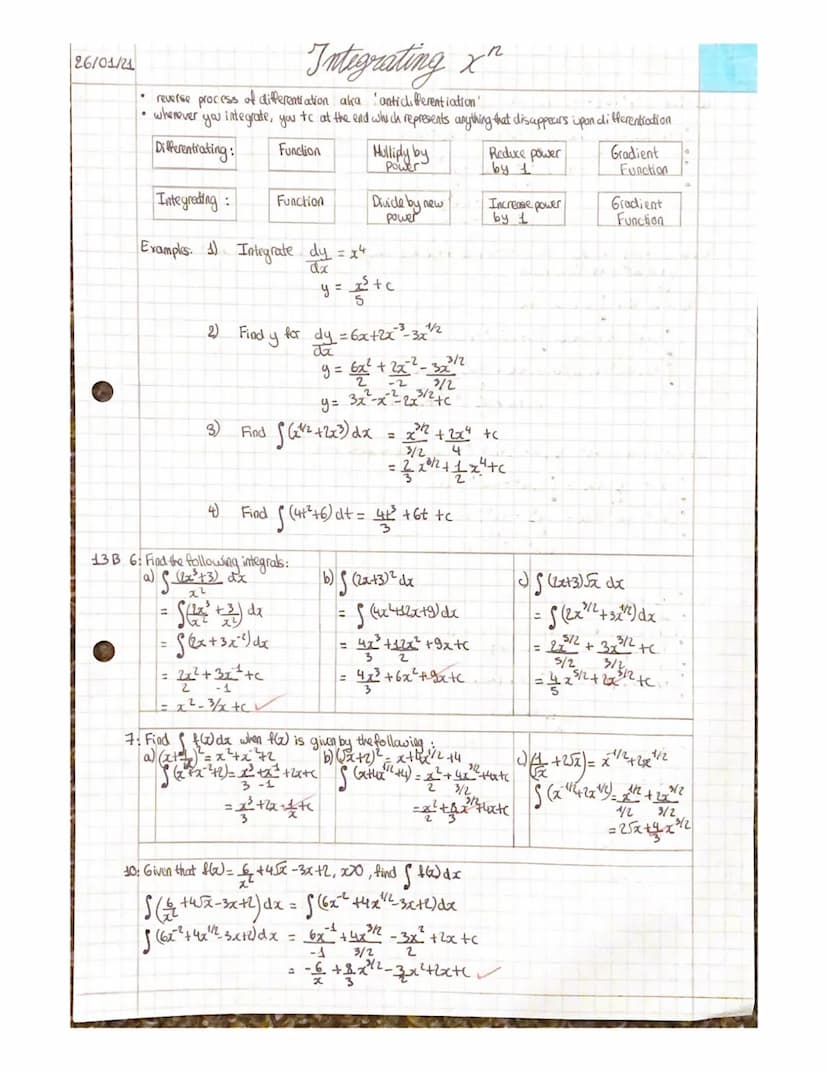 26/01/21
Integrating xⁿ
• reverse process of differentiation aka 'antidifferentiation'
• whenever you integrate, you +c at the end which represents anything that disappears upon differentiation
Differentiating: Function Multiply by power Reduce power by 1 Gradient Function
Integrating: Function Divide by new power Increase power by 1 Gradient Function
Examples. 1) Integrate dy/dx = x⁴
y = x⁵/5 + c
2) Find y for dy/dx = 6x+2x⁻³-3x^(1/2)
y = 6x²/2 + 2x⁻²/-2 - 3x^(3/2)/(3/2)
y = 3x²-x⁻²-2x^(3/2)+c
3) Find ∫(x^(1/2)+2x³)dx = x^(3/2)/(3/2) + 2x⁴/4 +c
= 2/3 x^(3/2) + 1/2 x⁴+c
4) Find ∫(4t²+6)dt = 4t³/3 +6t +c
13B 6: Find the following integrals:
a) ∫(2x³+3)/x² dx
= ∫(2x³/x² + 3/x²)dx
= ∫(2x+3x⁻²)dx
= 2x²/2 + 3x⁻¹/-1 +c
= x² - 3/x +c ✓
b) ∫(2x+3)² dx
= ∫(4x²+12x+9)dx
= 4x³/3 + 12x²/2 +9x+c
= 4x³/3 +6x²+9x+c
c) ∫(2x+3)√x dx
= ∫(2x^(3/2)+3x^(1/2))dx
= 2x^(5/2)/(5/2) + 3x^(3/2)/(3/2) +c
= 4/5 x^(5/2)+2x^(3/2)+c
7: Find ∫f(x)dx when f(x) is given by the following:
a) (x+1/x)² = x²+x⁻²+2
∫(x²+x⁻²+2) = x³/3 + x⁻¹/-1 +2x+c
= x³/3 +2x - 1/x +c
b) (√x+2)² = x+4x^(1/2)+4
∫(x+4x^(1/2)+4) = x²/2 + 4x^(3/2)/(3/2) +4x+c
= x²/2 + 8/3 x^(3/2)+4x+c
c) (1/√x +2√x) = x^(-1/2)+2x^(1/2)
∫(x^(-1/2)+2x^(1/2)) = x^(1/2)/(1/2) + 2x^(3/2)/(3/2)
= 2√x + 4/3 x^(3/2)
10: Given that f(x) = 6/x² +4√x -3x+2, x>0, find ∫f(x)dx
∫(6/x² +4√x -3x+2)dx = ∫(6x⁻² +4x^(1/2) -3x+2)dx
∫(6x⁻²+4x^(1/2)-3x+2)dx = 6x⁻¹/-1 + 4x^(3/2)/(3/2) - 3x²/2 +2x +c
= -6/x + 8/3 x^(3/2) - 3/2 x²+2x+c ✓